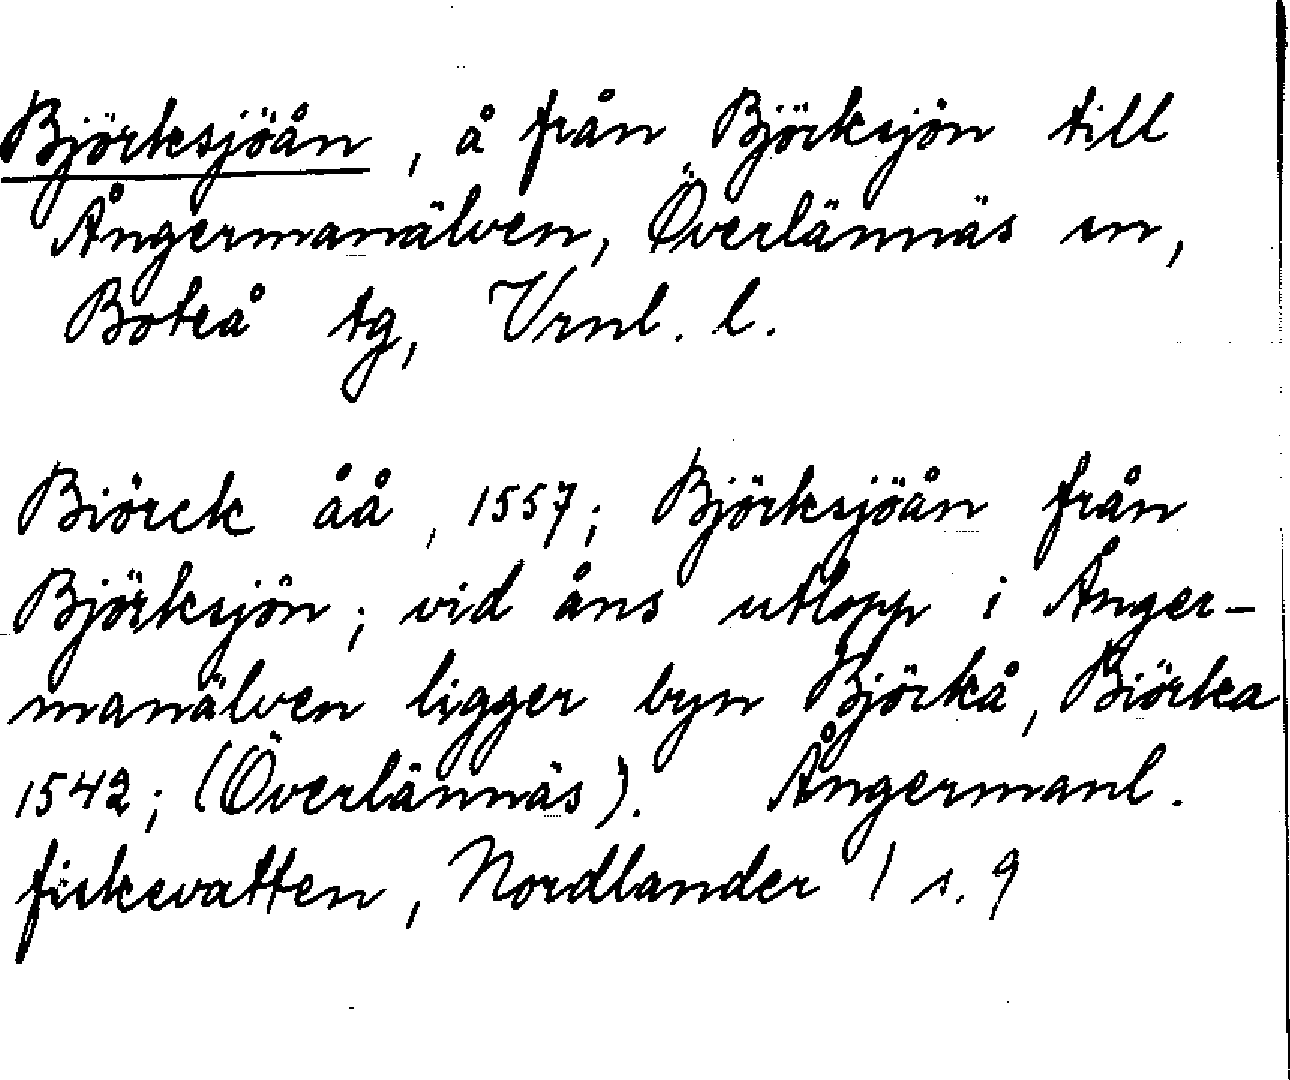 Björksjöån, å från Björksjön till
Ångermanälven, Överlännäs sn,
Boteå tg, Vrnl. l.
Biörck åå, 1557; Björksjöån från
Björksjön; vid åns utlopp i Ånger-
manälven ligger byn Björkå, Biörka
1542; (Överlännäs). Ångermanl.
fiskevatten, Nordlander 1 s. 9